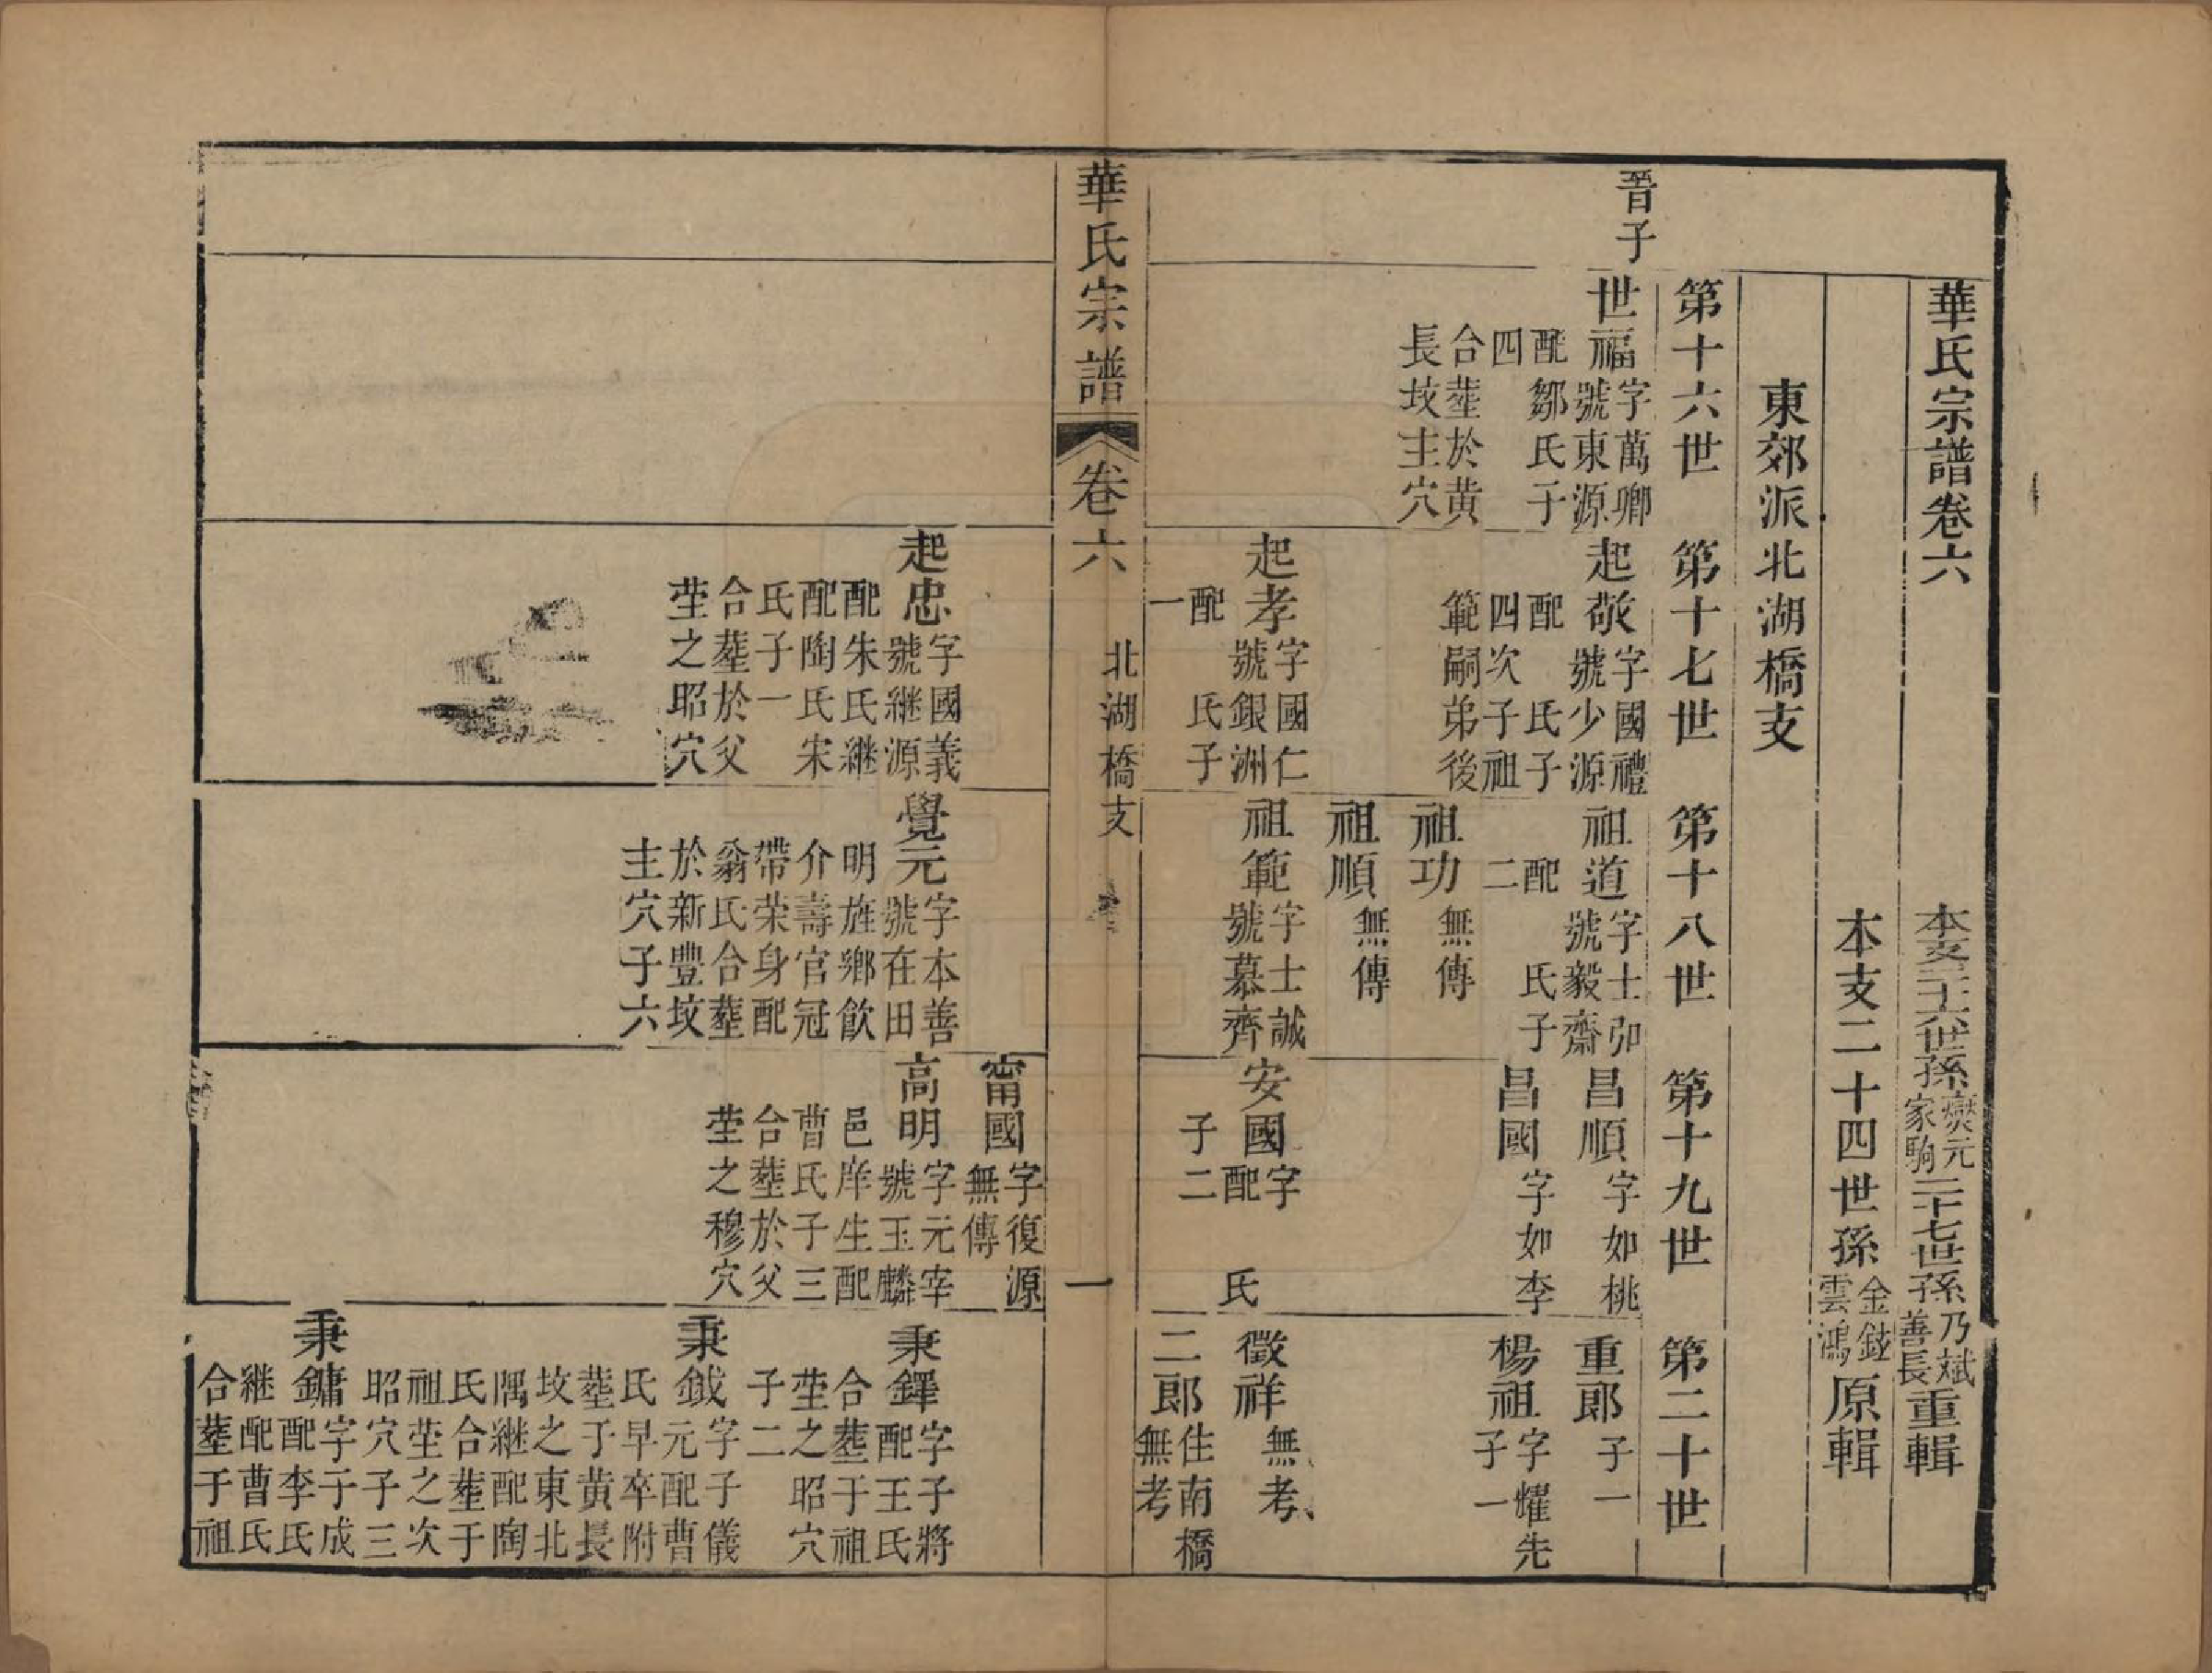 華氏宗譜卷六
本支二十六世孫燮元家駒二十七世孫乃斌善長重輯
本支二十四世孫金鉉雲鴻原輯
東郊派北湖橋支
第十六世
第十七世
第十八世
第十九世
第二十世
晉子
世福
字萬卿
號東源
配鄒氏子
四
合塟於黄
長坟主穴
起敬
字國禮
號少源
配 氏子
四次子祖
範嗣弟後
祖道
字士卯
號毅齋
配 氏子
二
昌順
字如桃
重郎
子一
昌國
字如李
楊祖
字耀先
子一
祖功
無傳
祖順
無傳
起孝
字國仁
號銀洲
配 氏子
一
祖範
字士誠
號慕齊
安國
字
配 氏
子二
徵祥
無考
二郎
住南橋
無考
華氏宗譜
卷六
北湖橋支
一
甯國
字復源
無傳
起忠
字國義
號継源
配朱氏継
配陶氏宋
氏子一
合塟於父
塋之昭穴
覺元
字本善
號在田
明旌鄉飲
介壽官冠
帶荣身配
翁氏合塟
於新豐坟
主穴子六
高明
字元宰
號玉麟
邑庠生配
曹氏子三
合塟於父
塋之穆穴
秉鐸
字子將
配王氏
合塟于祖
塋之昭穴
子二
秉鉞
字子儀
元配曹
氏早卒附
塟于黄長
坟之東北
隅継配陶
氏合塟于
祖塋之次
昭穴子三
秉鏞
字于成
配李氏
継配曹氏
合塟于祖